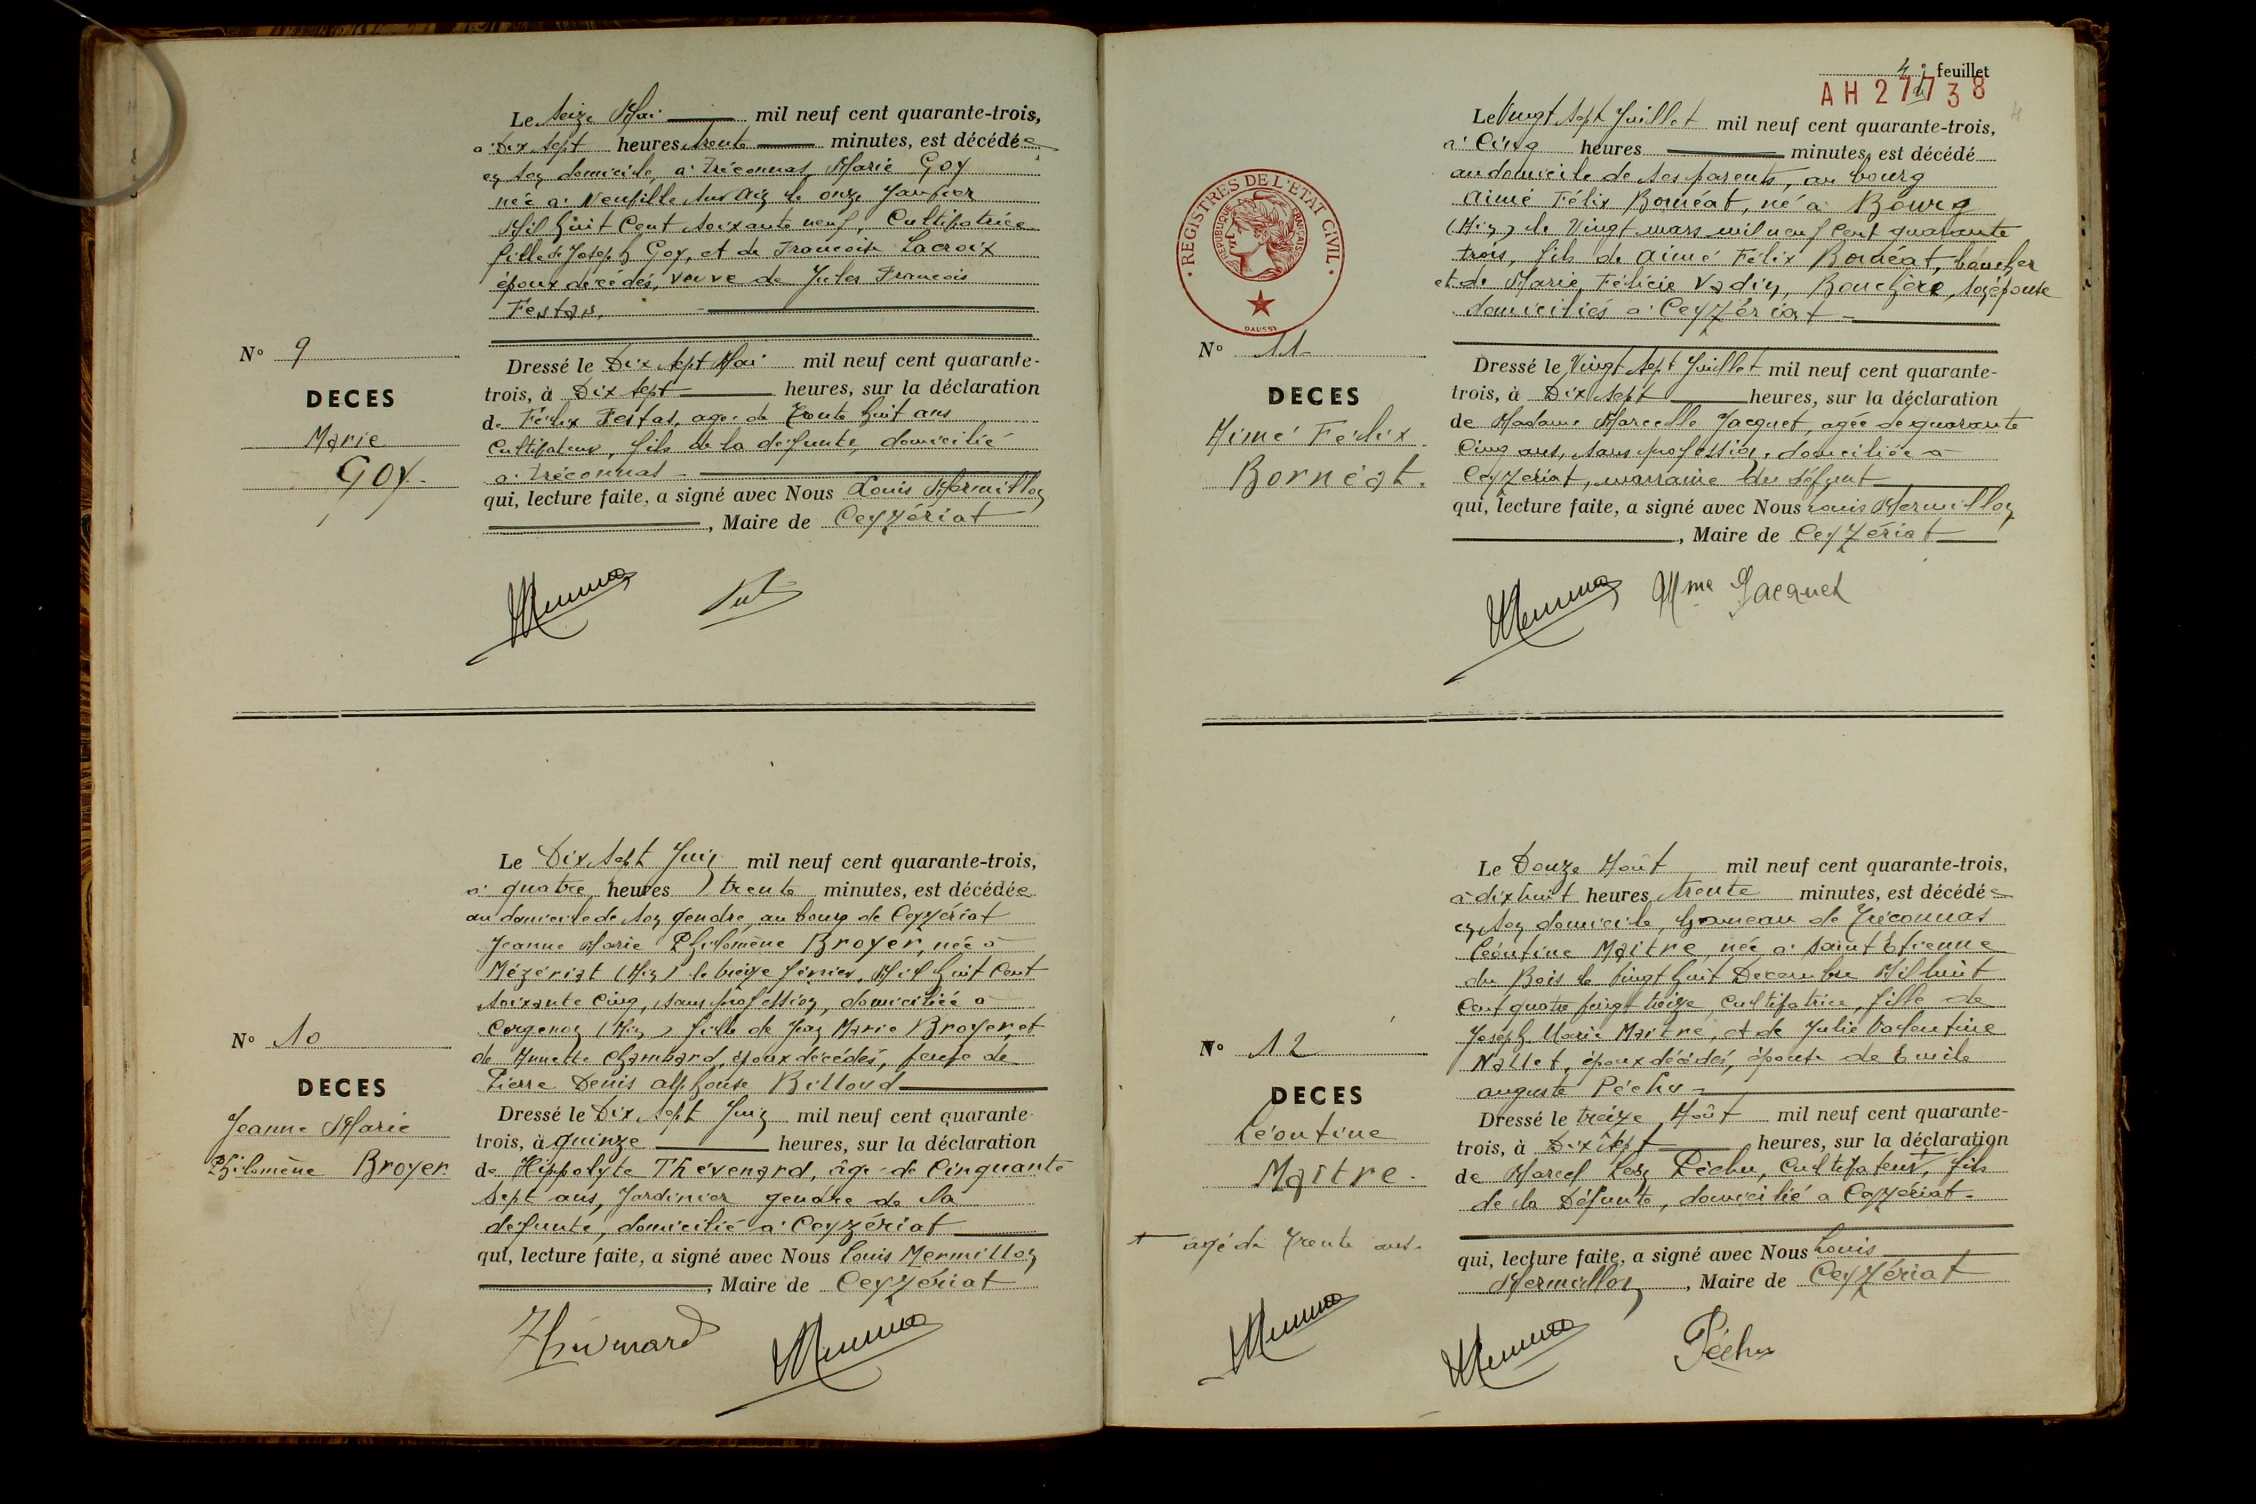 Le Seize Mai mil neuf cent quarante-trois,
à Dix Sept heures trente minutes, est décédée
en son domicile, à Tréconnas, Marie Goy
née à Neuville sur Ain le onze Janvier
Mil huit Cent soixante neuf, Cultivatrice
fille de Joseph Goy, et de Françoise Lacroix
époux décédés, veuve de Jules François
Festas.
N° 9
DECES
Marie
GOY.
Dressé le Dix Sept Mai mil neuf cent quarante-
trois, à Dix Sept heures, sur la déclaration
de Félix Festas, age de trente huit ans
Cultivateur, fils de la défunte, domicilié
à Tréconnas
qui, lecture faite, a signé avec Nous Louis Mermillon
, Maire de Ceyzériat
Le Dix Sept Juin mil neuf cent quarante-trois,
à quatre heures trente minutes, est décédée
au domicile de son gendre, au bourg de Ceyzériat
Jeanne Marie Philomène Broyer, née à
Mézériat (Ain) le treize février, Mil huit Cent
soixante Cinq, sans profession, domiciliée à
Corgenon (Ain) fille de Jean Marie Broyer, et
de Annette Chambard, époux décédés, veuve de
Pierre Denis alphonse Billoud
N° 10
DECES
Jeanne Marie
Philomène Broyer.
Dressé le Dix Sept Juin mil neuf cent quarante-
trois, à quinze heures, sur la déclaration
de Hippolyte Thévenard, âge de Cinquante
Sept ans, Jardinier gendre de la
défunte, domicilié à Ceyzériat
qui, lecture faite, a signé avec Nous Louis Mermillon
, Maire de Ceyzériat
Thévenard
4e feuillet
AH 27738
4
Le Vingt Sept Juillet mil neuf cent quarante-trois,
à Cinq heures minutes, est décédé
au domicile de ses parents, au bourg
Aimé Félix Bornéat, né à Bourg
(Ain) le Vingt mars mil neuf Cent quarante
trois, fils de aimé Félix Bornéat, boucher
et de Marie Félicie Vadin, Bouchère, son épouse
domiciliés à Ceyzériat
REGISTRES DE L'ETAT CIVIL
REPUBLIQUE FRANÇAISE
DAUSSY
N° 11
DECES
Aimé Félix
Bornéat.
Dressé le Vingt Sept Juillet mil neuf cent quarante-
trois, à Dix Sept heures, sur la déclaration
de Madame Marcelle Jacquet, agée de quarante
Cinq ans, sans profession, domiciliée à
Ceyzériat, marraine du défunt
qui, lecture faite, a signé avec Nous Louis Mermillon
, Maire de Ceyzériat
Mme Jacquet
Le Douze Août mil neuf cent quarante-trois,
à dix huit heures trente minutes, est décédée
en son domicile, hameau de Tréconnas
Léontine Maitre, née à Saint Etienne
du Bois le vingt huit Decembre Mil huit
Cent quatre vingt treize, Cultivatrice, fille de
Joseph Marie Maitre, et de Julie Valentine
Nallet, époux décédés, épouse de Emile
auguste Péchu
N° 12
DECES
Léontine
Maitre.
Dressé le treize Août mil neuf cent quarante-
trois, à Dix Sept heures, sur la déclaration
de Marcel Léon Péchu, Cultivateur, fils
de la Défunte, domicilié à Ceyzériat.
agé de Trente ans.
qui, lecture faite, a signé avec Nous Louis
Mermillon, Maire de Ceyzériat
Péchu